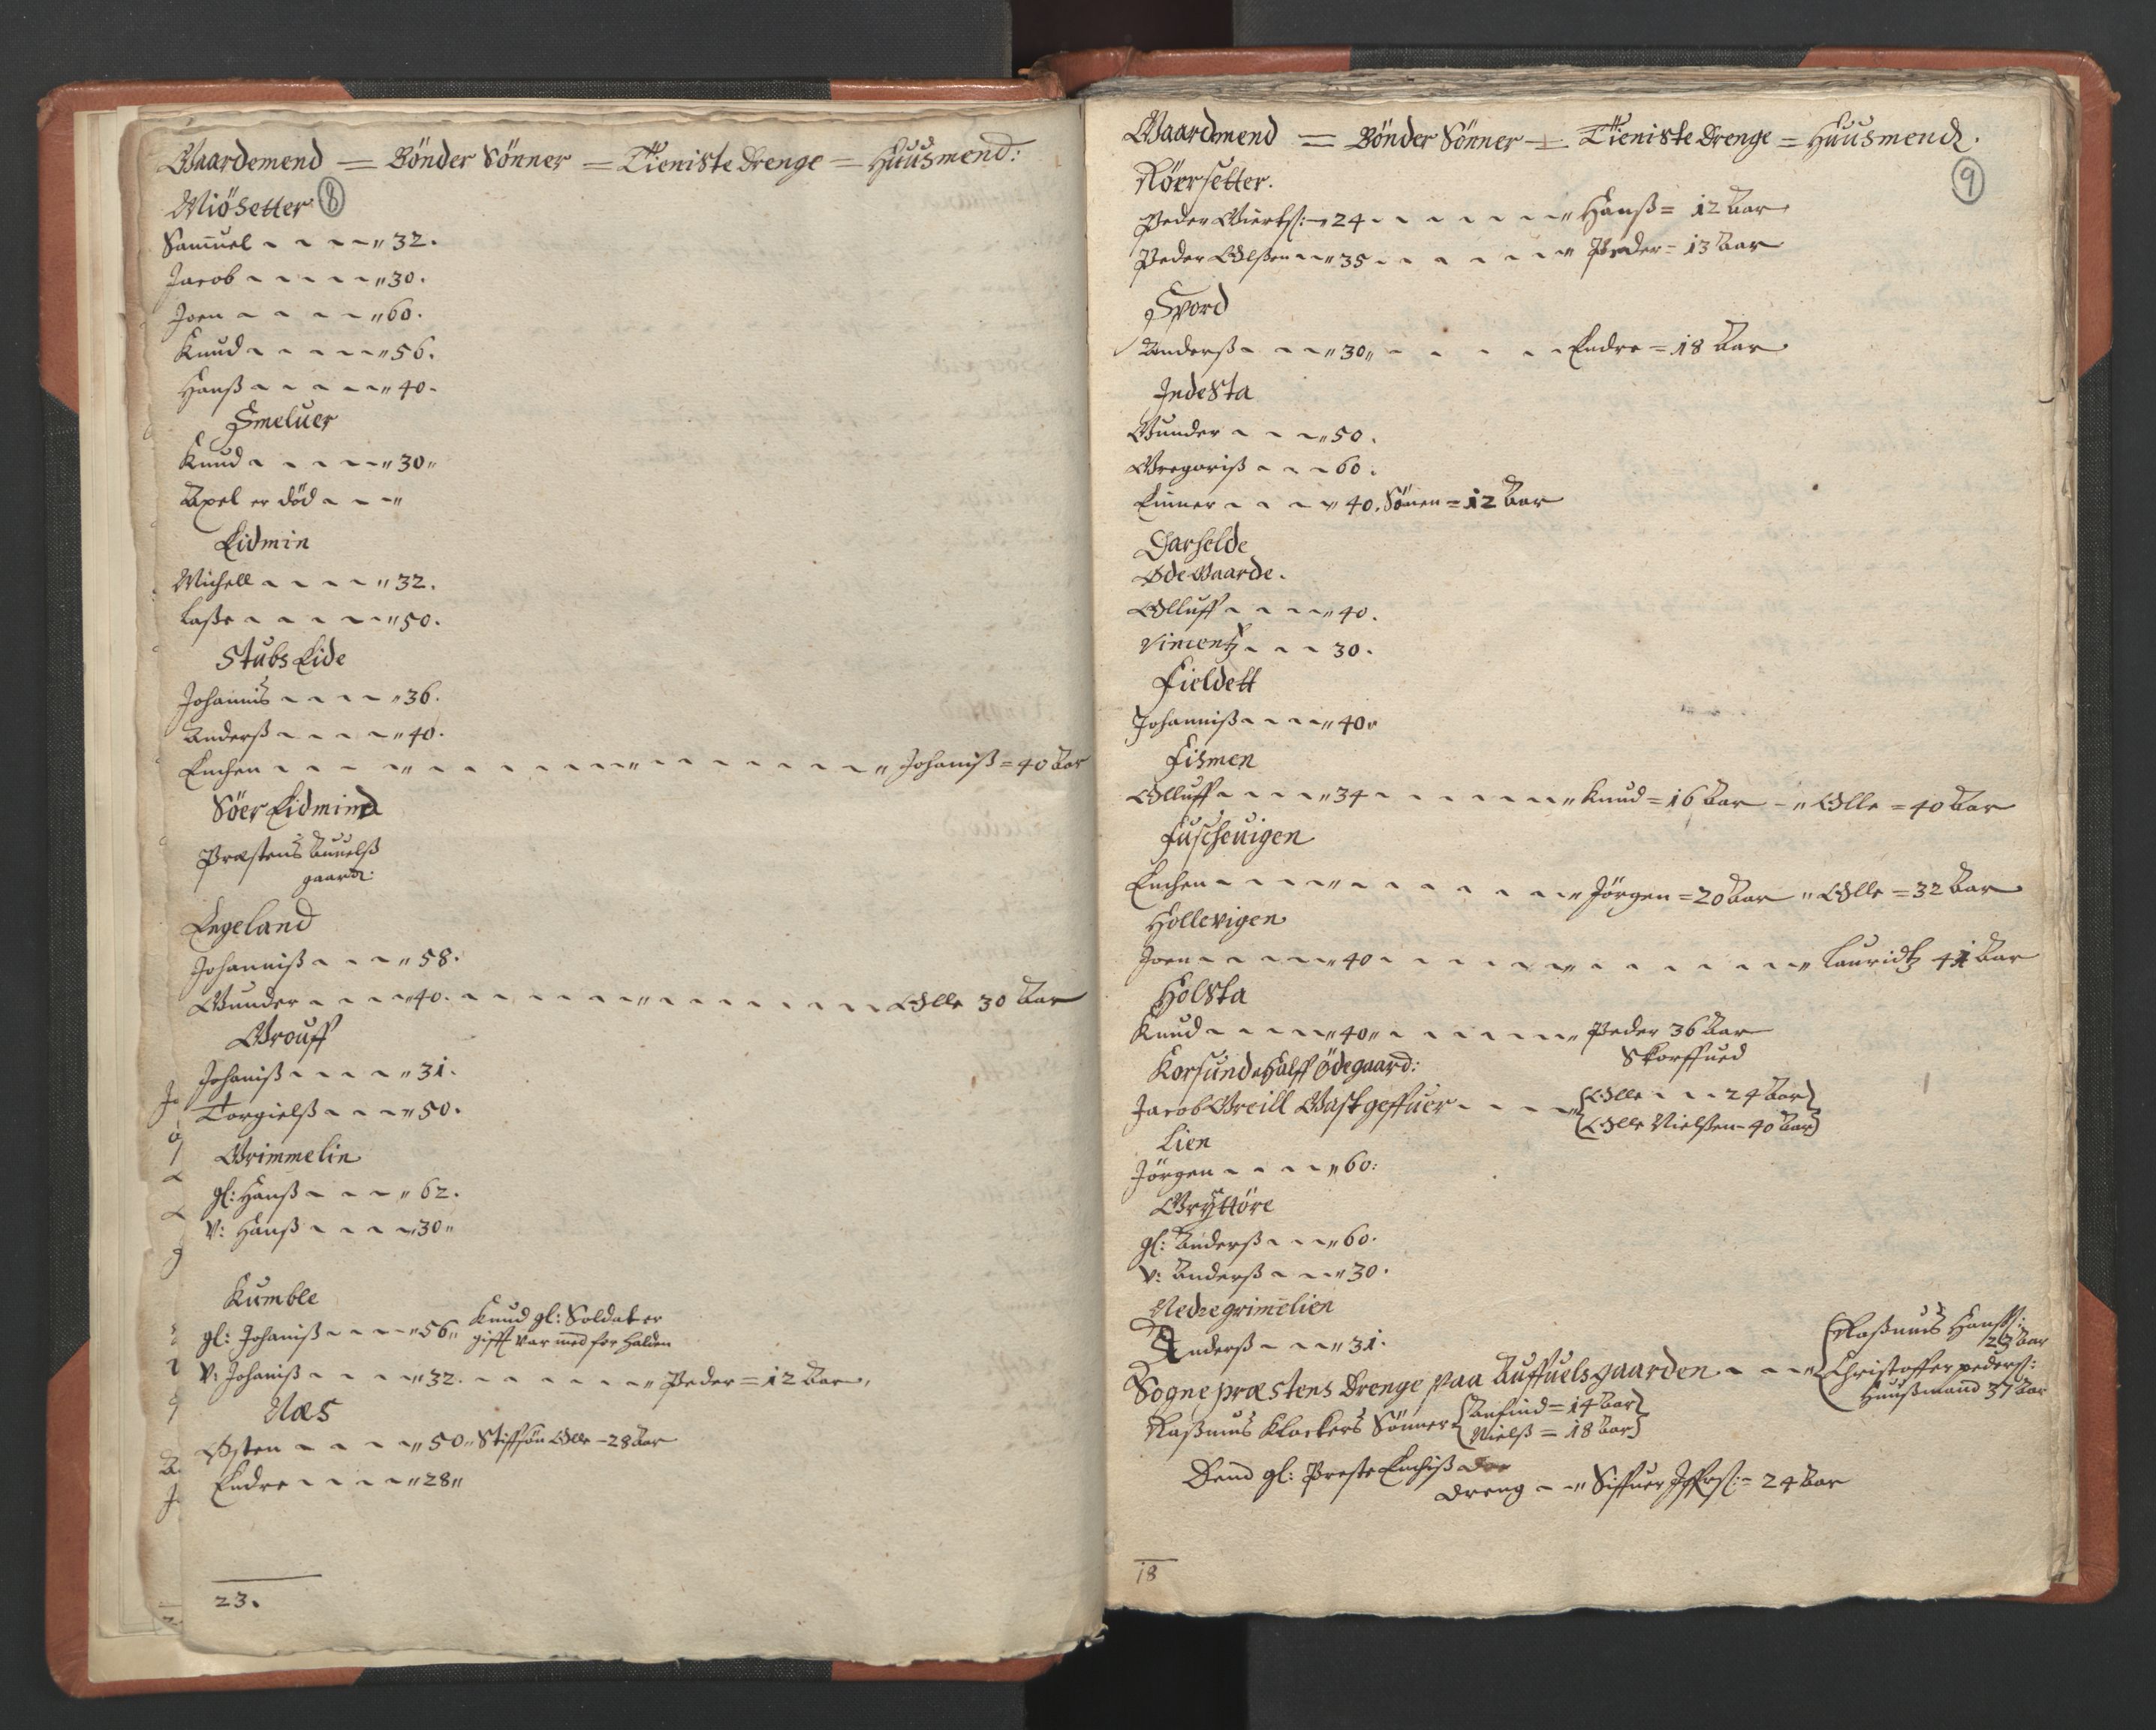 Gaardemend = Bönder Sönner = Tieniste drenge = Huusmend:
Miösetter 8
Samuel - - - - " 32.
Jacob - - - - - " 30.
Joen - - - - " 60.
Knud - - - - - " 56.
Hanß - - - - - " 40.
Smeluer
Knud - - - - - " 30"
Axel er död - - - "
Eidmin
Michell - - - - " 32.
Laße - - - - - - " 50.
Stubs Eide
Johannis - - - - " 36.
Anderß - - - - - " 40.
Enchen - - - - " - - - - - - - " - - - - - - - - " Johaniß = 40 Aar
Söer Eidmind
Præstens Auuelß
gaard:
Legeland
Johanniß - - - - " 58.
Gunder - - - - " 40. - - - - - - " - - - - - - - - Olle 30 Aar
Grouff
Johaniß - - - - - " 31.
Torgielß - - - - " 50.
Grimmelin
gl: Hanß - - - - " 62.
V: Hanß - - - - - 30"
Kumble
Knud gl: Soldat er
gl: Johaniß - - - - " 56" gifft var med for Halden
V: Johaniß - - - - " 32. - - - - - - - " Peder = 12 Aar.
Næs
Östen - - - - - " 50" Stiffsön Olle - 28 Aar
Endre - - - - - " 28"
23.
Gaardmend = Bönder Sönner = Tieniste drenge = Huusmend.
9
Röersetter.
Peder Siurtsß: - " 24 - - - - - - - " Hanß = 12 Aar
Peder Olßen - - " 35 - - - - - - - " Peder - 13 Aar
Spord
Anderß - - - - " 30" - - - - - - Endre = 18 Aar
Indesta
Gunder - - - - " 50.
Gregoriß - - - - 60.
Einner - - - - " 40. Sönen = 12 Aar
Ode Gaarde.
Olluff - - - - - " 40.
Vincentz - - - - 30.
Fieldett
Johanniß - - - - " 40"
Fismen
Olluff - - - - - " 34 - - - - - - - " Knud = 16 Aar - " Olle = 40 Aar
Fuschevigen
Enchen - - - - - " - - - - - - - " Jörgen = 20 Aar " Olle = 32 Aar
Hollevigen
Joen - - - - - " 40 - - - - - - - " - - - - - - - " Lauridtz 41 Aar
Holsta
Knud - - - - - " 40" - - - - - - - " Peder 36 Aar
Skorffued
Korsund Halff Ödegaard:
Jacob Greill Gastgeffuer - - - - " {Olle - - - 24 Aar}
{Olle Nielßen - 40 Aar}
Lien
Jörgen - - - - - " 60:
Gryttöre
gl: Anderß - - - " 60.
V: Anderß - - - " 30.
Nedregrimelien
Anderß - - - " 31.
Sogne præstens Drenge paa Auffuelsgaarden - - - " {Raßmus Hanß:
23 Aar
Christoffer peders:
Huußmand 37 Aar
Raßmus Klockers Sönner {Anfind = 14 Aar}
{Nielß = 18 Aar}
Dend gl: Preste Enchiß
dreng - - " Siffuer = 24 Aar
18